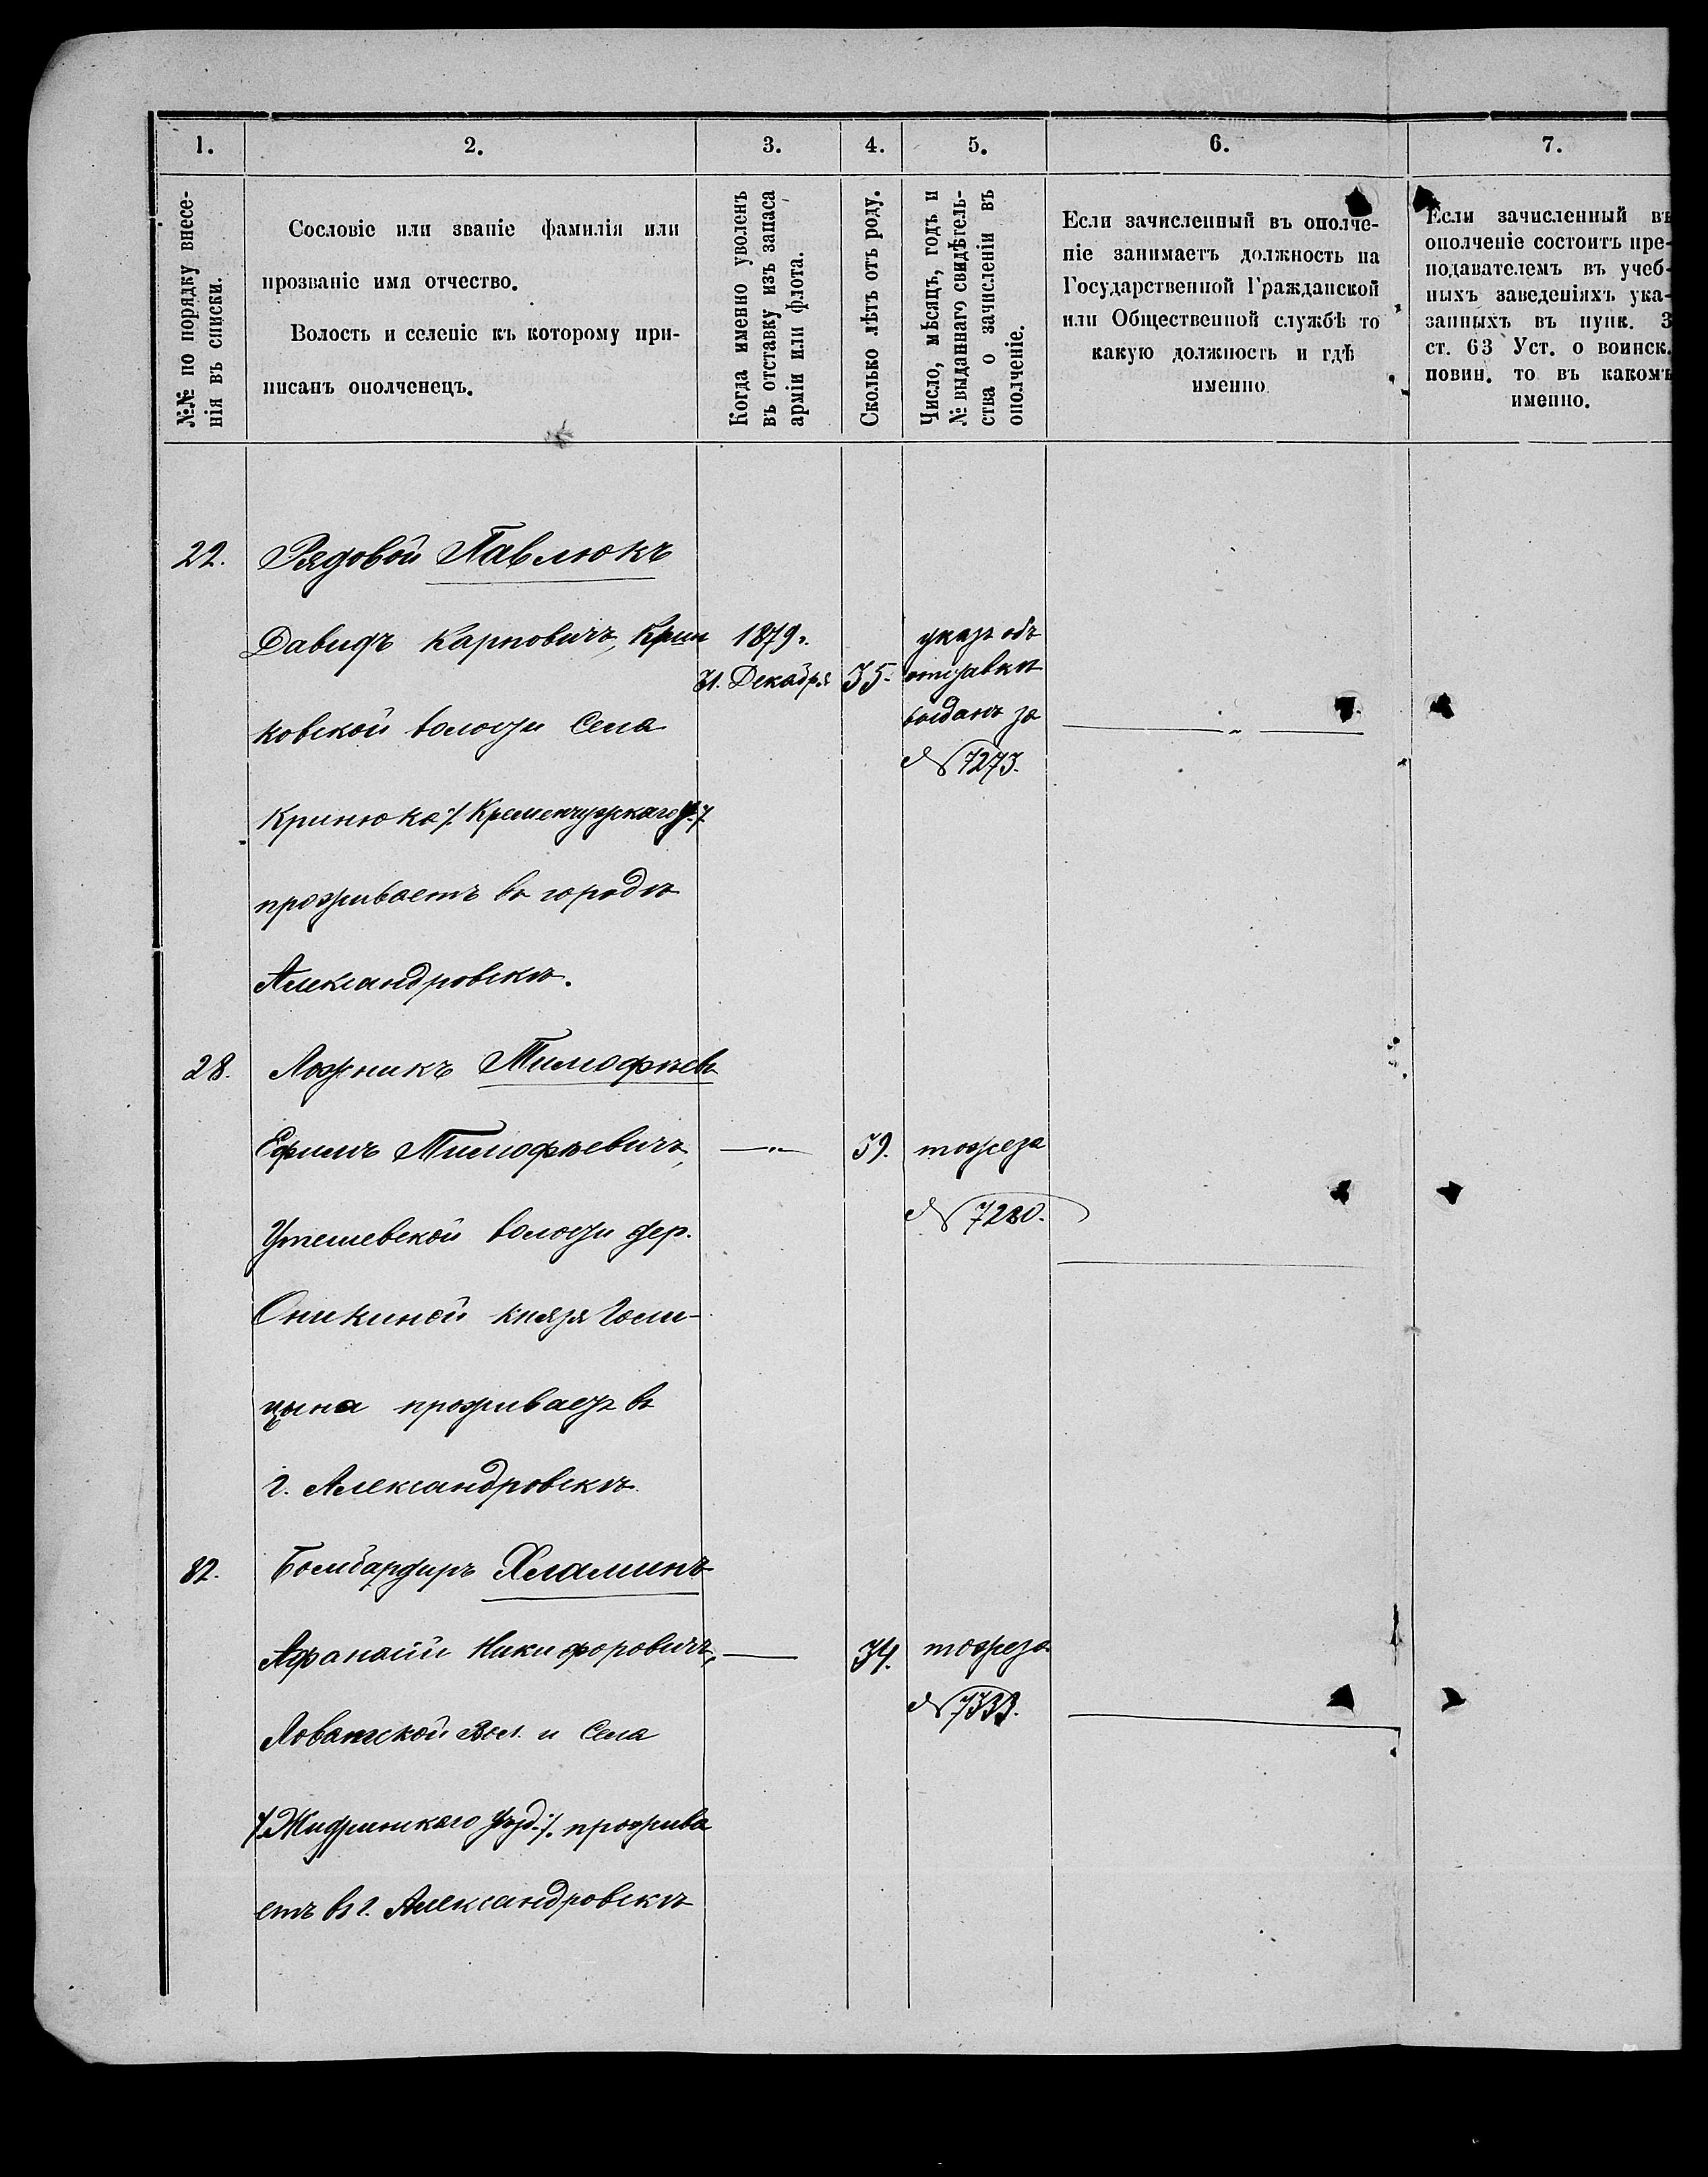 1.
2.
3.
4.
5.
6.
7.
№№ по порядку внесе-
нія въ списки.
Сословіе или званіе фамилія или
прозваніе имя отчество.
Волость и селеніе къ которому при-
писанъ ополченецъ.
Когда именно уволенъ
въ отставку изъ запаса
арміи или флота.
Сколько лѣтъ отъ роду.
Число, мѣсяцъ, годъ и
№ выданнаго свидѣтель-
ства о зачисленіи въ
ополченіе.
Если зачисленный въ ополче-
ніе занимаетъ должность на
Государственной Гражданской
или Общественной службѣ то
какую должность и гдѣ
именно
Если зачисленный въ
ополченіе состоитъ пре-
подавателемъ въ учеб-
ныхъ заведеніяхъ ука-
занныхъ въ пунк. 3
ст. 63 Уст. о воинск.
повин. то въ какомъ
именно.
22.
Рядовой Павлюкъ
Давидъ Карповичъ, Крин
ковской волости Села
Кринюка /. Кременчугскаго У. /
проживаетъ въ городѣ
Александровскѣ.
1879.
31. Декабря
35.
указъ объ
отставкѣ
выданъ за
№ 7273.
28.
Ложникъ Тимофѣевъ
Ефимъ Тимофѣевичъ,
Утешевской волости дер.
Оникиной князя Голи-
цына проживаетъ въ
г. Александровскѣ
—„—
39.
тоже за
№ 7280.
82.
Бомбардиръ Хламинъ
Афанасій Никифоровичъ,
Ловатской Вол. и Села
/. Жиздринскаго Уѣзд. /. прожива
етъ въ г. Александровскѣ
34.
тоже за
№ 7333.